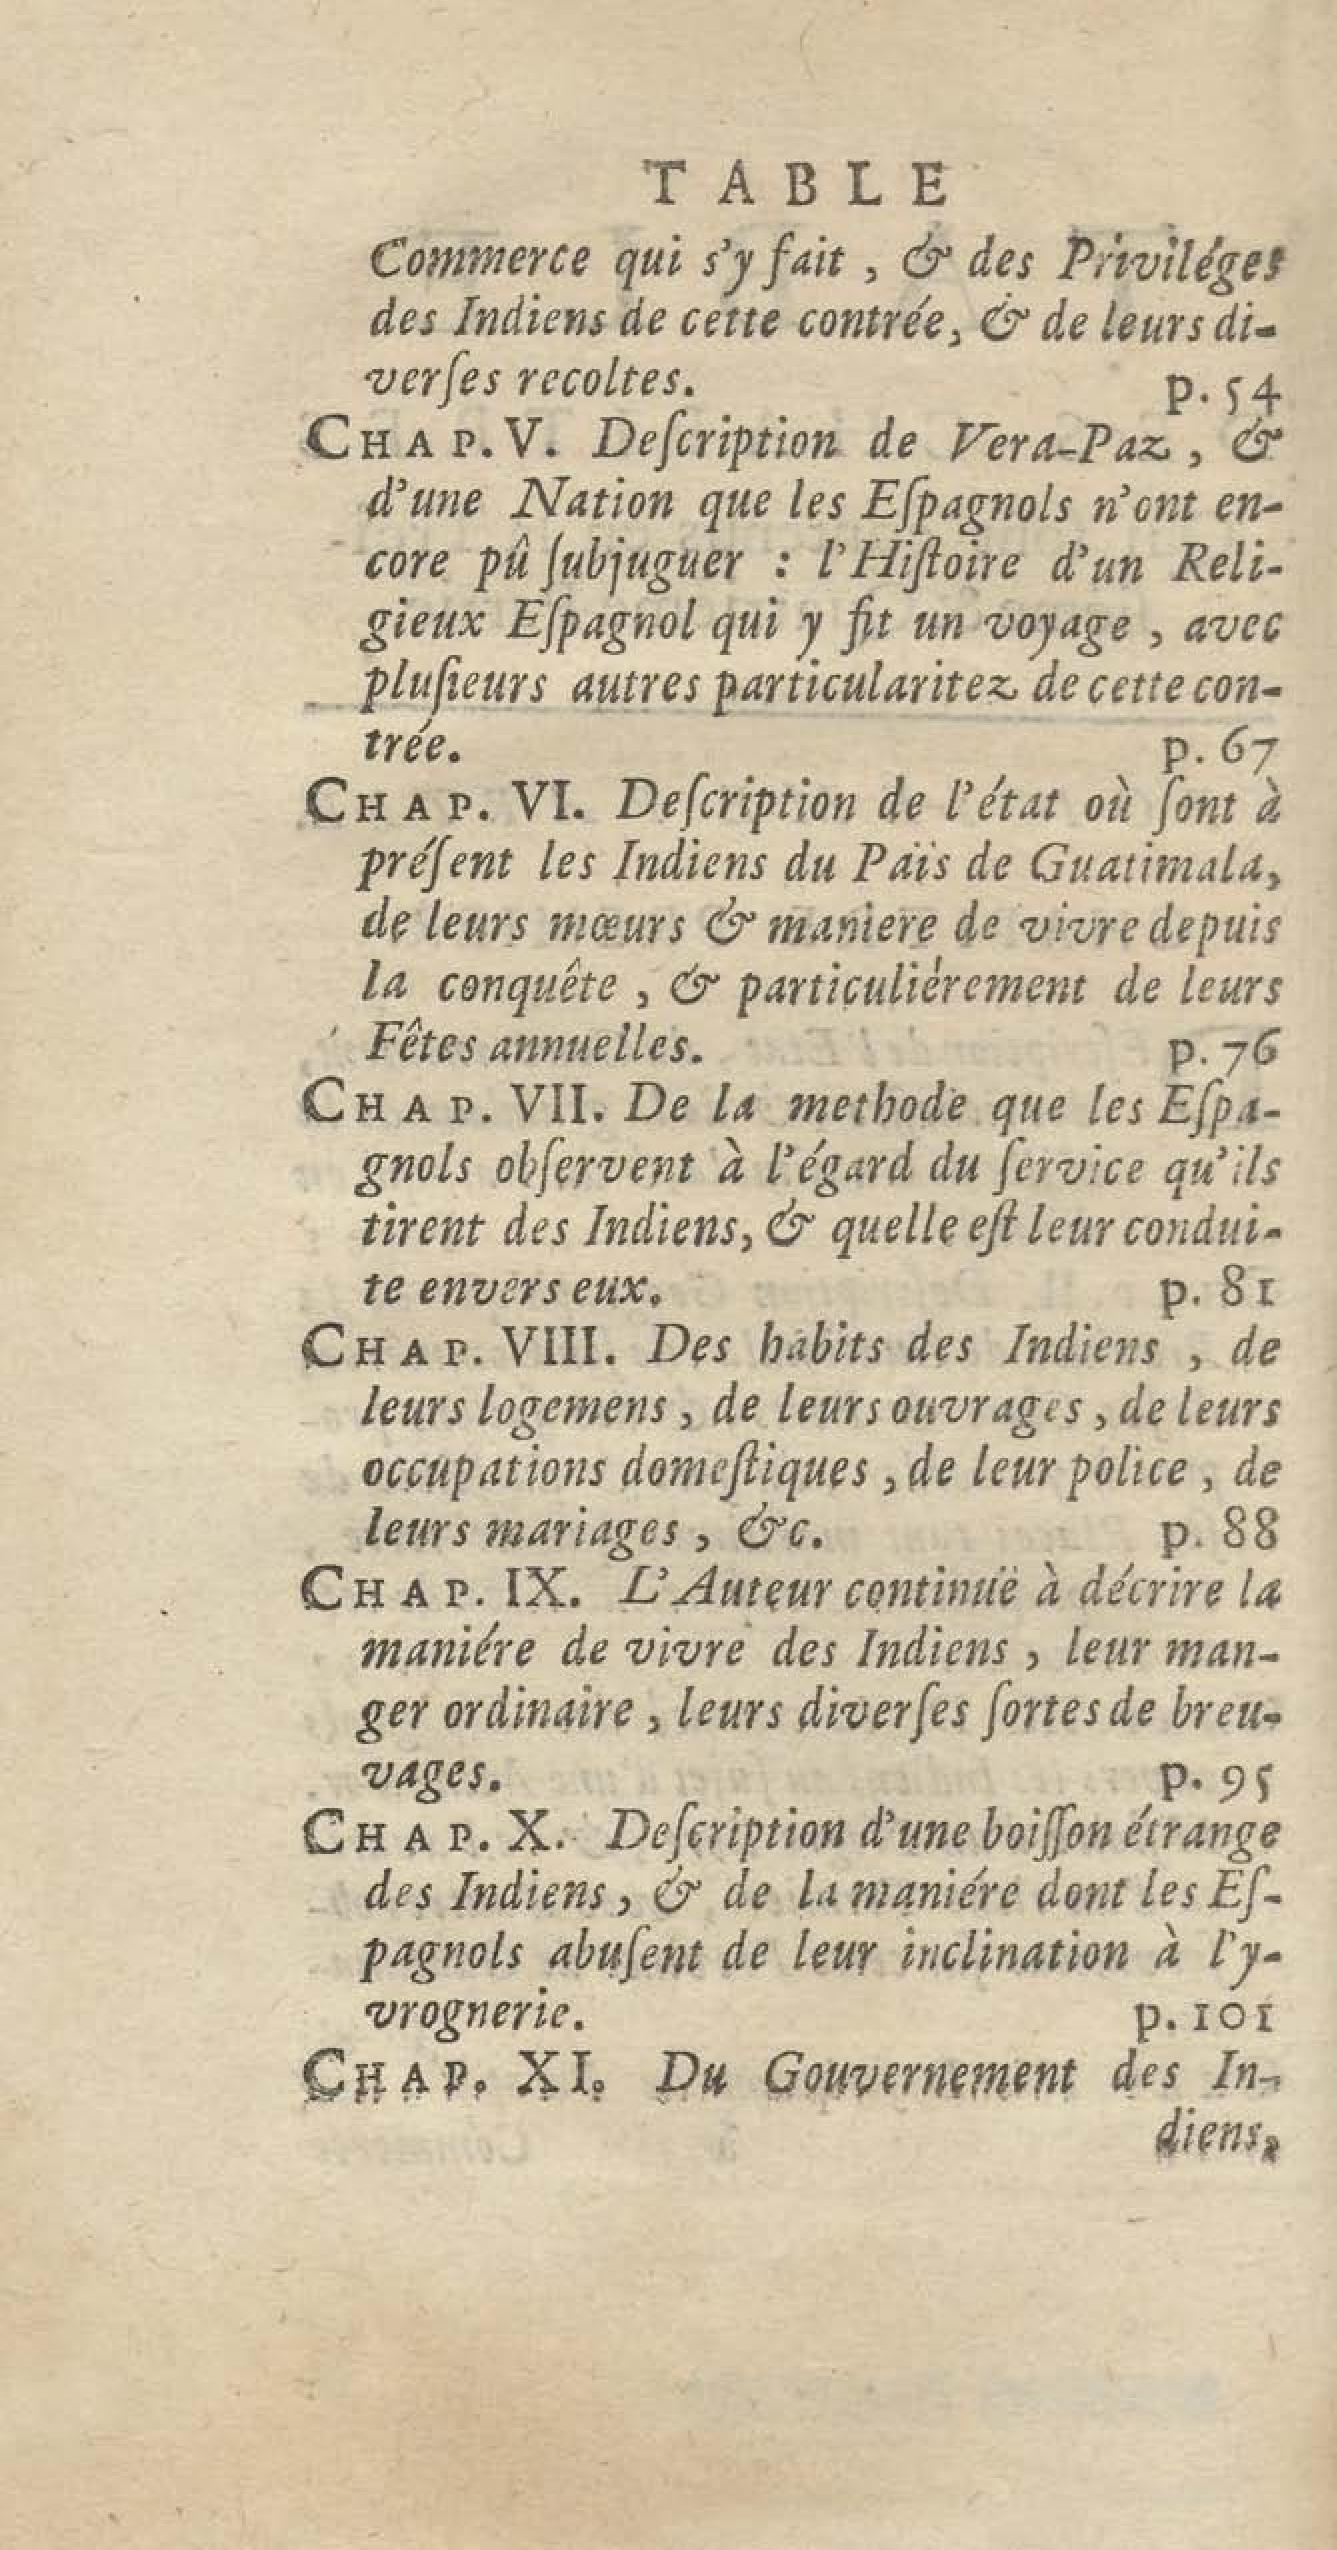 TABLE
Commerce qui s'y fait, & des Priviléges
des Indiens de cette contrée, & de leurs di-
verſes recoltes. p. 54
CHAP. V. Deſcription de Vera-Paz, &
d'une Nation que les Eſpagnols n'ont en-
core pû ſubjuguer : l'Hiſtoire d'un Reli-
gieux Eſpagnol qui y fit un voyage, avec
pluſieurs autres particularitez de cette con-
trée. p. 67
CHAP. VI. Deſcription de l'état où ſont à
préſent les Indiens du Païs de Guatimala,
de leurs mœurs & maniere de vivre depuis
la conquête, & particuliérement de leurs
Fêtes annuelles. p. 76
CHAP. VII. De la methode que les Eſpa-
gnols obſervent à l'égard du ſervice qu'ils
tirent des Indiens, & quelle eſt leur condui-
te envers eux. p. 81
CHAP. VIII. Des habits des Indiens, de
leurs logemens, de leurs ouvrages, de leurs
occupations domeſtiques, de leur police, de
leurs mariages, &c. p. 88
CHAP. IX. L'Auteur continuë à décrire la
maniére de vivre des Indiens, leur man-
ger ordinaire, leurs diverſes ſortes de breu-
vages. p. 95
CHAP. X. Deſcription d'une boiſſon étrange
des Indiens, & de la maniére dont les Eſ-
pagnols abuſent de leur inclination à l'y-
vrognerie. p. 101
CHAP. XI. Du Gouvernement des In-
diens,